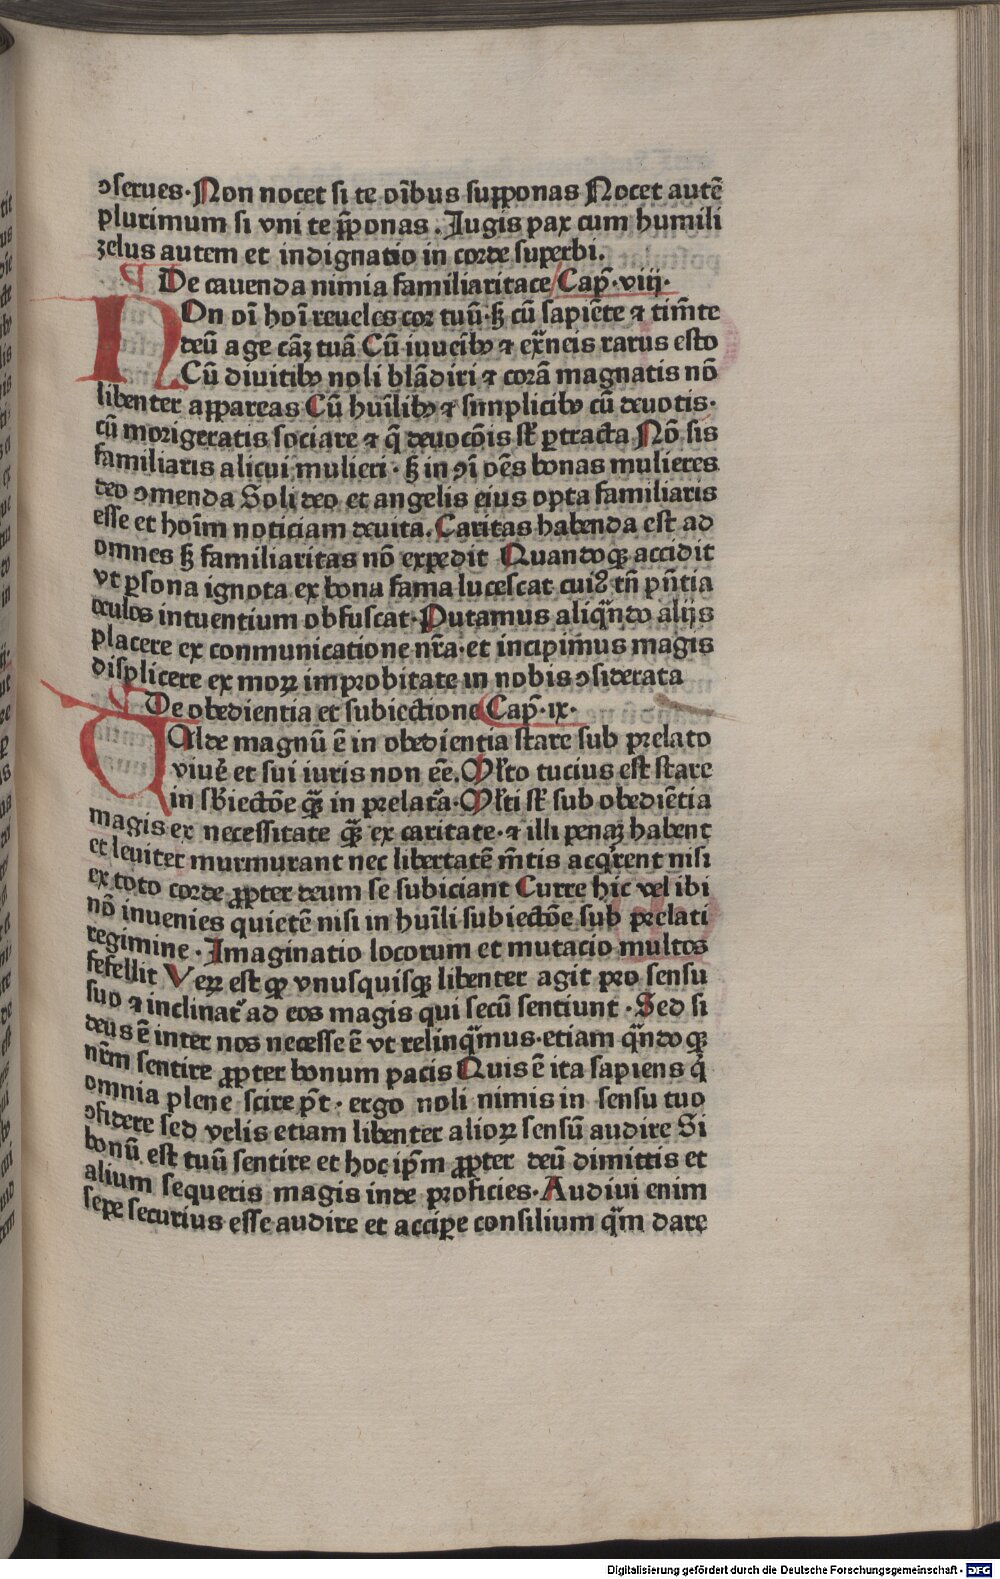 ɔſerues· Non nocet ſi te oībus ſuꝓponas Nocet autē
plurimum ſi vni te p̄ponas. Iugis pax cum humili
zelus autem et indignatio in corde ſuꝑbi.
De cauenda nimia familiaritace Cap̄·viij·
NOn oī hoī reueles cor tuū·ſꝫ cū ſapiēte ⁊ tim̄te
deū age cāꝫ tuā Cū iuuēibꝰ ⁊ ex̄neis rarus eſto
Cū diuitibꝰ noli blādiri ⁊ corā magnatis nō
libenter aꝑpareas Cū huīlibꝰ ⁊ ſimplicibꝰ cū deuotis·
cū morigeratis ſociare ⁊ q̄ deuocōis ſt̄ ꝑtracta Nō ſis
familiaris alicui mulieri· ſꝫ in ɔī oēs bonas mulieres
deo ɔmenda Soli deo et angelis eius opta familiaris
eſſe et hoīm noticiam deuita. Caritas habenda eſt ad
omnes ſꝫ familiaritas nō expedit Quandoqꝫ accidit
vt ꝑſona ignota ex bona fama luceſcat cuiꝰ tn̄ pn̄tia
oculos intuentium obfuſcat· Putamus aliqn̄do alijs
placere ex conmunicatione nr̄a·et incipim̄us magis
diſplicere ex moꝝ improbitate in nobis ɔſiderata
De obedientia et ſubiectione Cap̄·ix·
VAlde magnū ē in obedientia ſtare ſub prelato
viuē et ſui iuris non eē. Ml̄to tucius eſt ſtare
in ſb̄iectōe qͣꝫ in prelat̄a· Ml̄ti ſt̄ ſub obediētia
magis ex neceſſitate qͣꝫ ex caritate·⁊ illi penaꝫ habent
et leuiter murmurant nec libertatē m̄tis acqͥrent niſi
ex toto corde ꝓpter deum ſe ſubiciant Curre hic vel ibi
nō inuenies quietē niſi in huīli ſubiectōe ſub prelati
regimine· Imaginatio locorum et mutacio multos
fefellit Veꝝ eſt qꝫ vnuſquiſqꝫ libenter agit pro ſenſu
ſuo ⁊ inclinat̄ ad eos magis qui ſecū ſentiunt· Sed ſi
deus ē inter nos neceſſe ē vt relinqͣmus·etiam qn̄doqꝫ
nr̄m ſentire ꝓpter bonum pacis Quis ē ita ſapiens qͥ
omnia plene ſcire pt̄· ergo noli nimis in ſenſu tuo
ɔfidere ſed velis etiam libenter alioꝝ ſenſū audire Si
bonū eſt tuū ſentire et hoc ip̄m ꝓpter deū dimittis et
alium ſequeris magis inde proficies· Audiui enim
ſepe ſecurius eſſe audire et acciꝑe conſilium qͣm dare
Digitalisierung gefördert durch die Deutsche Forschungsgemeinschaft - DFG